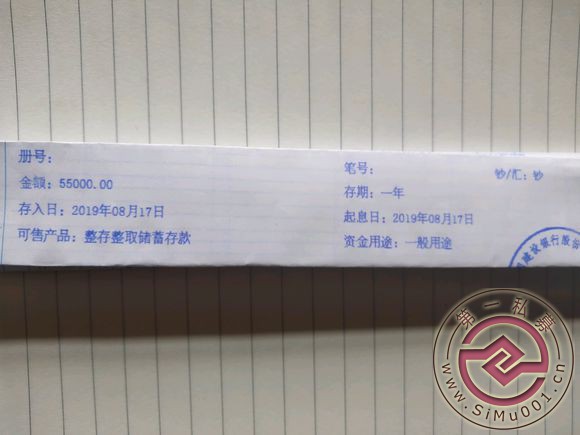 册号：
笔号： 钞/汇：钞
金额：55000.00
存期：一年
存入日：2019年08月17日
起息日：2019年08月17日
可售产品：整存整取储蓄存款
资金用途：一般用途
建设银行股份
第一私募
www.SiMu001.cn